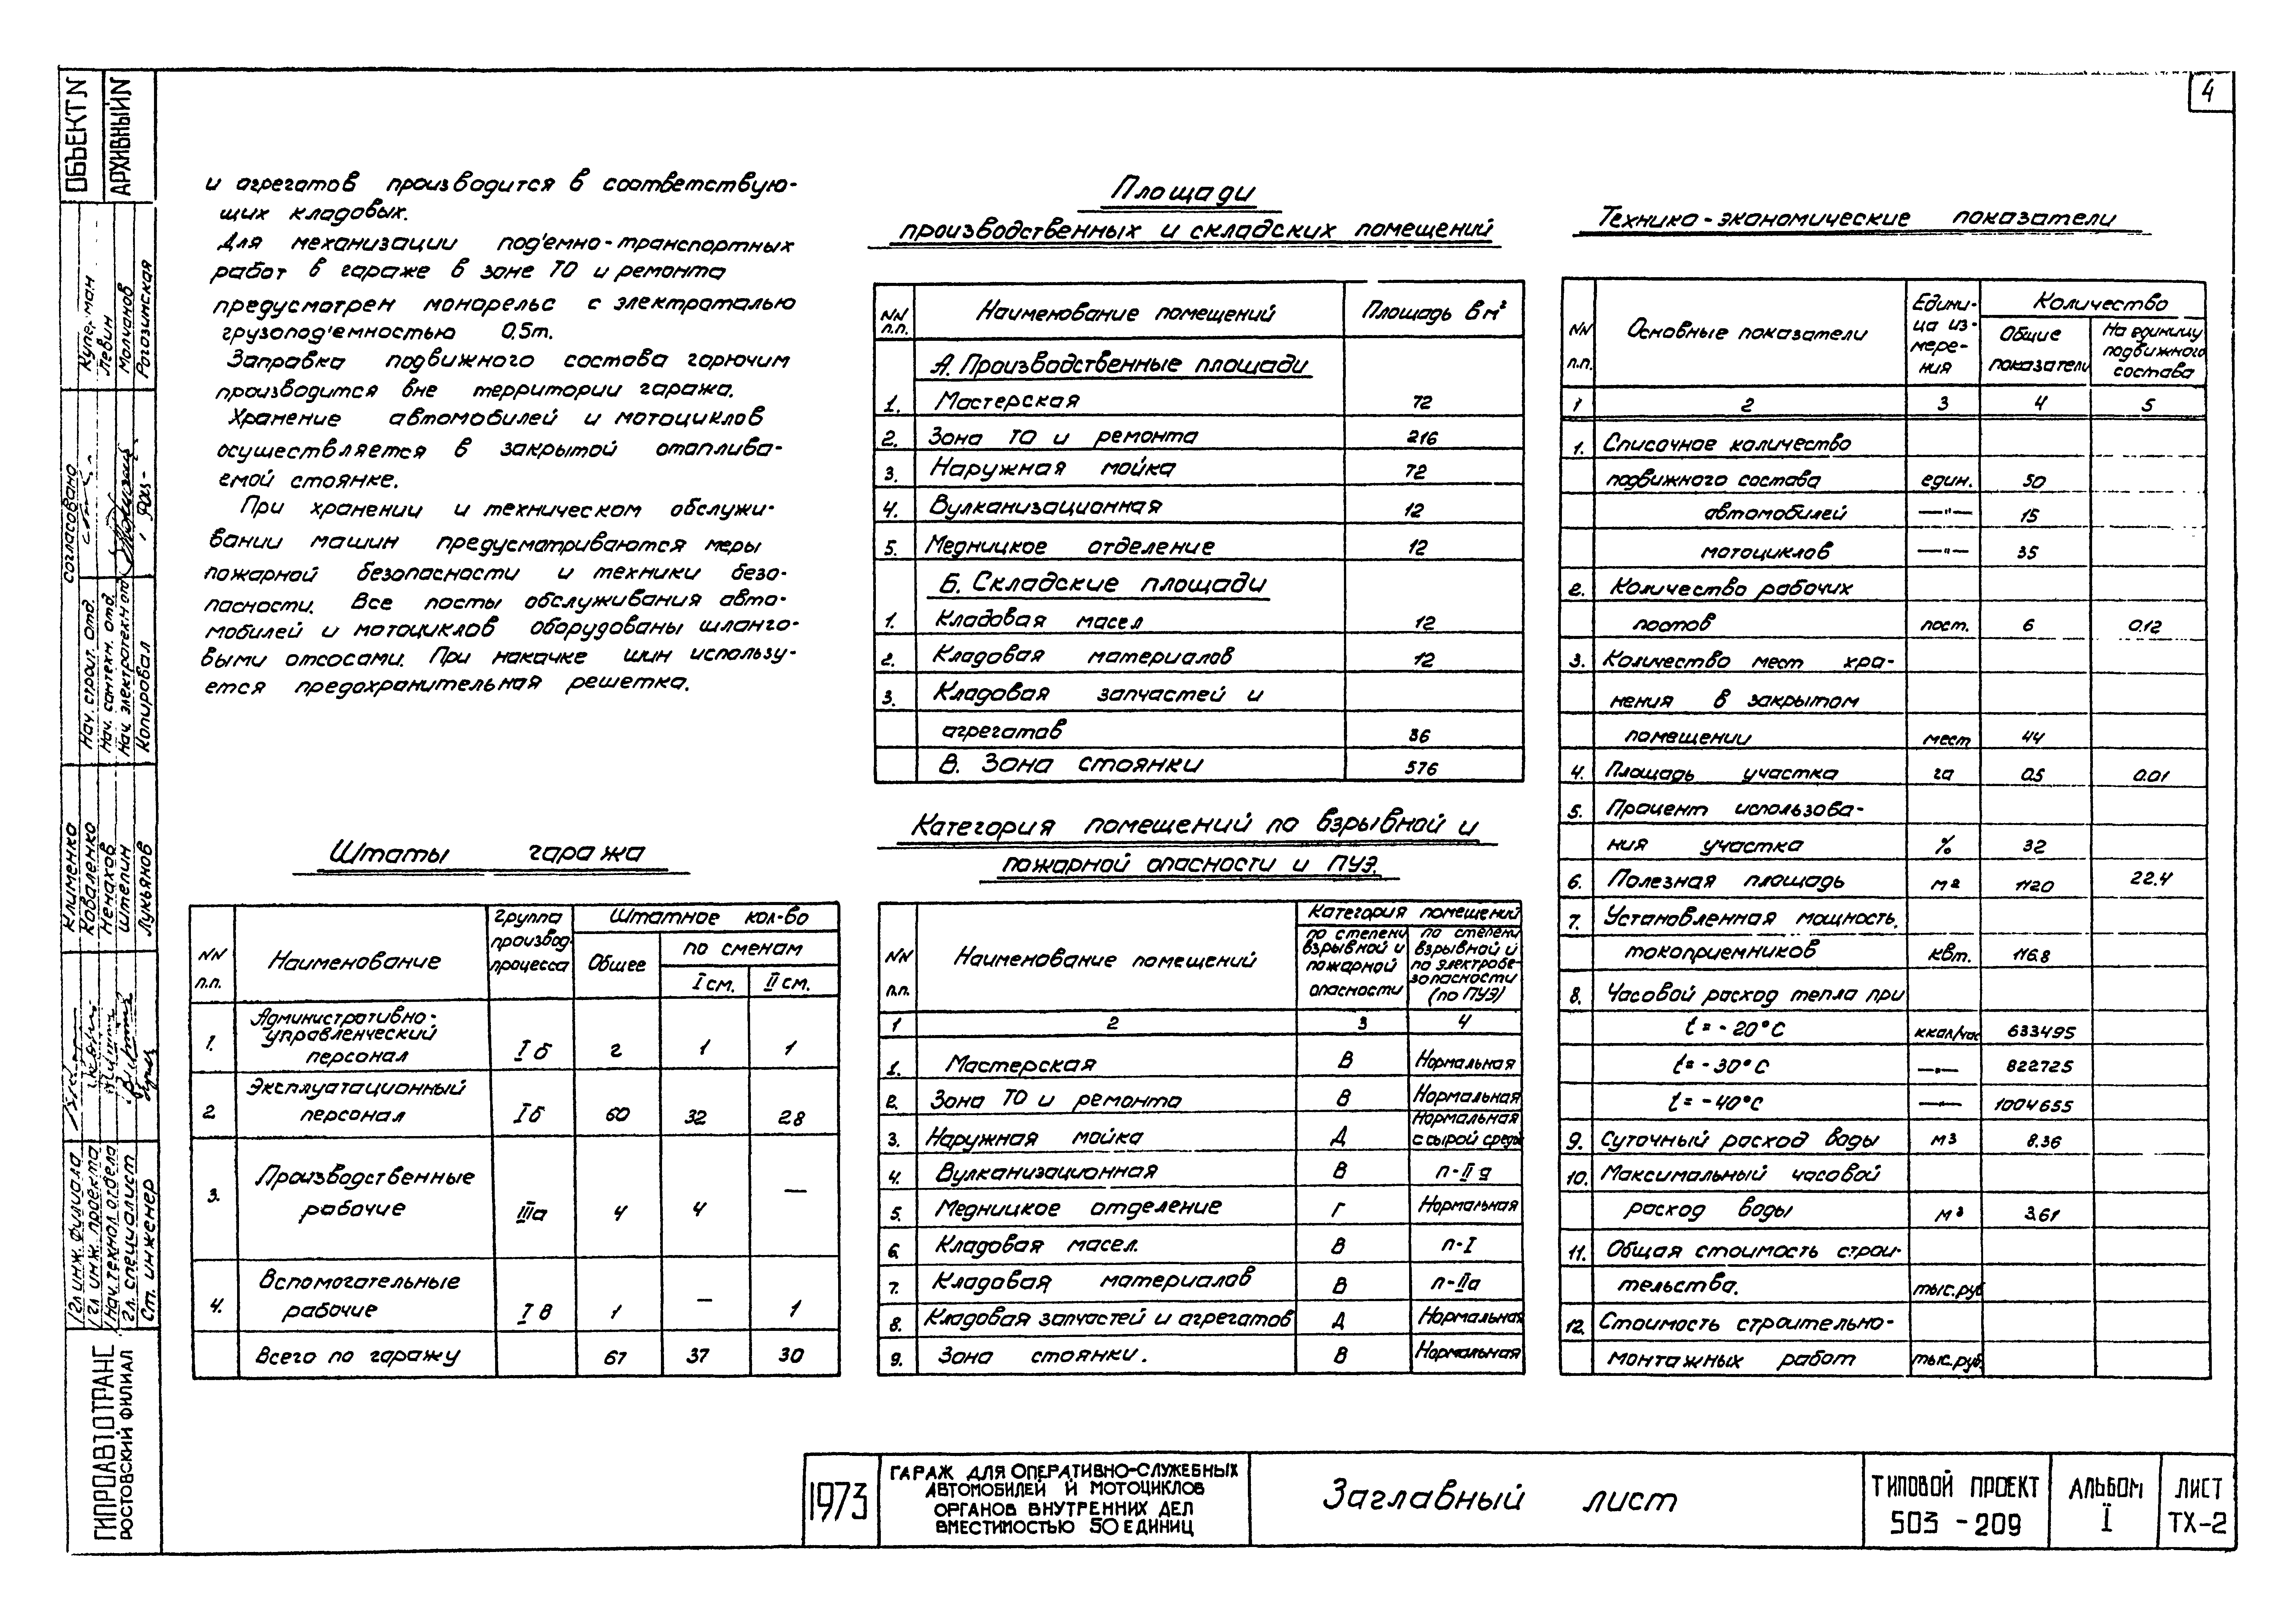 4
ОБЪЕКТ N
АРХИВНЫЙ N
и агрегатов производится в соответствую-
щих кладовых.
Для механизации под'емно-транспортных
работ в гараже в зоне ТО и ремонта
предусмотрен монорельс с электроталью
грузопод'емностью 0,5т.
Заправка подвижного состава горючим
производится вне территории гаража.
Хранение автомобилей и мотоциклов
осуществляется в закрытой отаплива-
емой стоянке.
При хранении и техническом обслужи-
вании машин предусматриваются меры
пожарной безопасности и техники безо-
пасности. Все посты обслуживания авто-
мобилей и мотоциклов оборудованы шланго-
выми отсосами. При накачке шин использу-
ется предохранительная решетка.
Штаты гаража
NN п.п. Наименование Группа производ. процесса Штатное кол-во
Общее по сменам
I см. II см.
1. Административно-
управленческий
персонал Iб 2 1 1
2 Эксплуатационный
персонал Iб 60 32 28
3. Производственные
рабочие IIIа 4 4 —
4. Вспомогательные
рабочие Iв 1 — 1
Всего по гаражу 67 37 30
Площади
производственных и складских помещений
NN п.п. Наименование помещений Площадь в м²
А. Производственные площади
1. Мастерская 72
2. Зона ТО и ремонта 216
3. Наружная мойка 72
4. Вулканизационная 12
5. Медницкое отделение 12
Б. Складские площади
1. Кладовая масел 12
2. Кладовая материалов 12
3. Кладовая запчастей и
агрегатов 36
В. Зона стоянки 576
Категория помещений по взрывной и
пожарной опасности и ПУЭ.
NN п.п. Наименование помещений Категория помещений
по степени взрывной и пожарной опасности
по степени взрывной и по электробезопасности (по ПУЭ)
1 2 3 4
1. Мастерская В Нормальная
2. Зона ТО и ремонта В Нормальная
3. Наружная мойка Д Нормальная с сырой средой
4. Вулканизационная В п-II д
5. Медницкое отделение Г Нормальная
6. Кладовая масел. В п-I
7. Кладовая материалов В п-IIа
8. Кладовая запчастей и агрегатов Д Нормальная
9. Зона стоянки. В Нормальная
Технико-экономические показатели
NN п.п. Основные показатели Едини-ца из-мере-ния Количество
Общие показатели На единицу подвижного состава
1 2 3 4 5
1. Списочное количество
подвижного состава един. 50
автомобилей —"— 15
мотоциклов —"— 35
2. Количество рабочих
постов пост. 6 0.12
3. Количество мест хра-
нения в закрытом
помещении мест 44
4. Площадь участка га 0.5 0.01
5. Процент использова-
ния участка % 32
6. Полезная площадь м2 1120 22.4
7. Установленная мощность,
токоприемников квт. 116.8
8. Часовой расход тепла при
t = -20°С ккал/час 633495
t = -30°С —"— 822725
t = -40°С —"— 1004655
9. Суточный расход воды м3 8.36
10. Максимальный часовой
расход воды м3 3.61
11. Общая стоимость строи-
тельства. тыс.руб
12. Стоимость строительно-
монтажных работ тыс.руб.
согласовано
Нач. строит. отд. Куперман
Нач. сантехн. отд. Левин
Нач. электротехн. отд Молчанов
Копировал Рогозинская
Гл инж. филиала Клименко
Гл инж. проекта Коваленко
Нач. технол отдела Ненахов
Гл. специалист Штепин
Ст. инженер Лукьянов
ГИПРОАВТОТРАНС
РОСТОВСКИЙ ФИЛИАЛ
1973
ГАРАЖ ДЛЯ ОПЕРАТИВНО-СЛУЖЕБНЫХ
АВТОМОБИЛЕЙ И МОТОЦИКЛОВ
ОРГАНОВ ВНУТРЕННИХ ДЕЛ
ВМЕСТИМОСТЬЮ 50 ЕДИНИЦ
Заглавный лист
ТИПОВОЙ ПРОЕКТ
503-209
АЛЬБОМ
I
ЛИСТ
ТХ-2